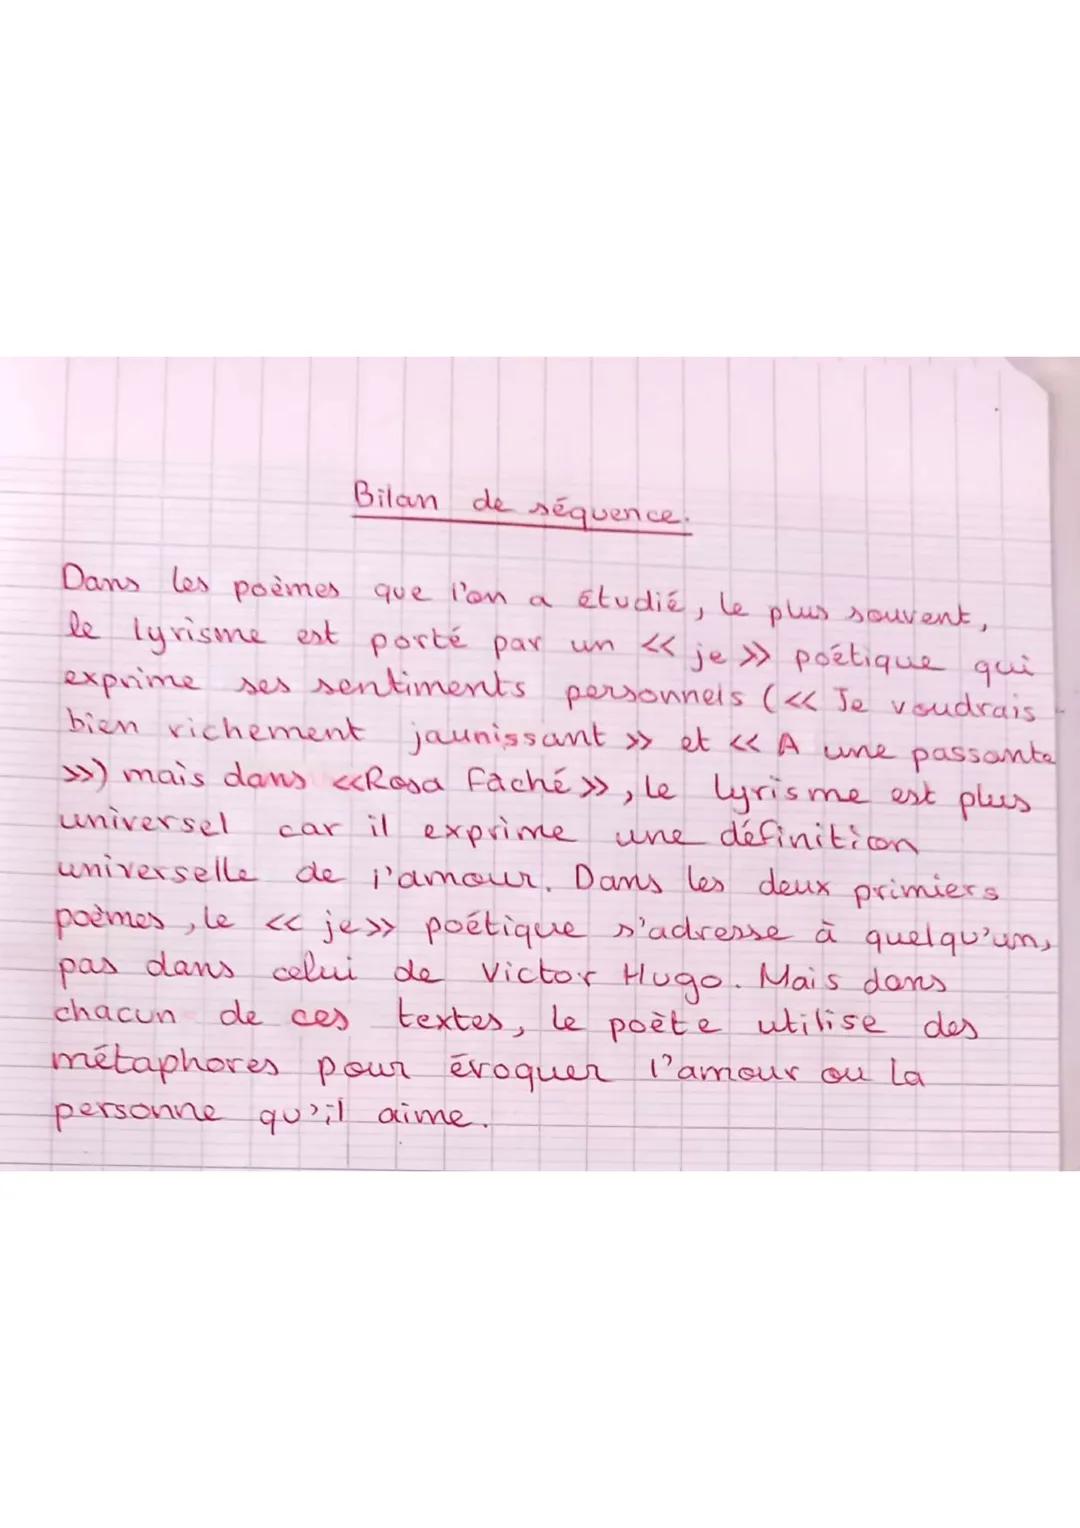 Bilan de séquence.
Dans les poèmes que l'on a étudié, le plus souvent,
le lyrisme est porté par un << je >> poétique qui
exprime ses sentiments personnels (<< Je voudrais
bien richement jaunissant >> et << A une passante
>>) mais dans <<Rosa Fâché>>, le lyrisme est plus
universel car il exprime une définition
universelle de l'amour. Dans les deux primiers
poèmes, le << je>> poétique s'adresse à quelqu'un,
pas dans celui de Victor Hugo. Mais dans
chacun de ces textes, le poète utilise des
métaphores pour évoquer l'amour ou la
personne qu'il aime.